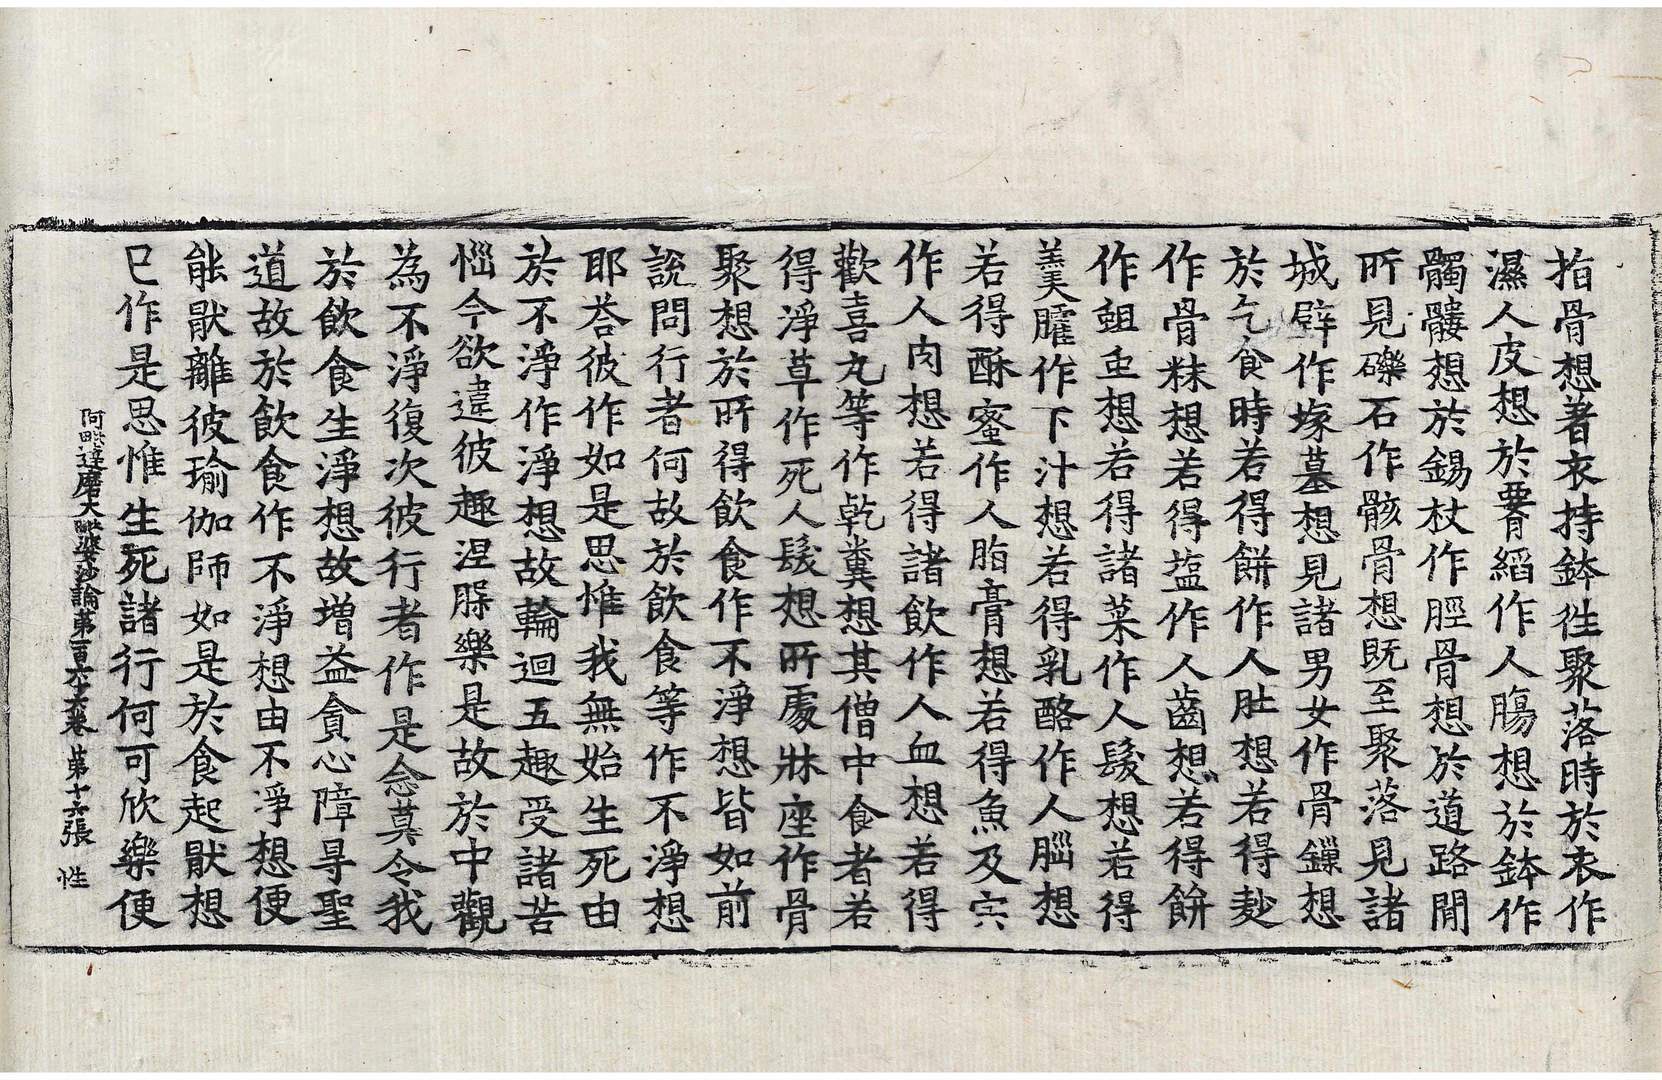 指骨想著衣持鉢往聚落時於衣作
濕人皮想於腰絛作人膓想於鉢作
髑髏想於錫杖作脛骨想於道路閒
所見礫石作骸骨想旣至聚落見諸
城壁作塚墓想見諸男女作骨鏁想
於乞食時若得餅作人肚想若得麨
作骨粖想若得塩作人齒想若得餅
作蛆虫想若得諸菜作人髮想若得
羹臛作下汁想若得乳酪作人腦想
若得酥蜜作人脂膏想若得魚及宍
作人肉想若得諸飮作人血想若得
歡喜丸等作乾糞想其僧中食者若
得淨草作死人髮想所處牀座作骨
聚想於所得飮食作不淨想皆如前
說問行者何故於飮食等作不淨想
耶荅彼作如是思惟我無始生死由
於不淨作淨想故輪迴五趣受諸苦
惱今欲違彼趣涅槃樂是故於中觀
為不淨復次彼行者作是念莫令我
於飮食生淨想故增益貪心障㝵聖
道故於飮食作不淨想由不淨想便
能猒離彼瑜伽師如是於食起猒想
已作是思惟生死諸行何可欣樂便
阿毗達磨大毗婆沙論第一百六十六卷 第十六張 性